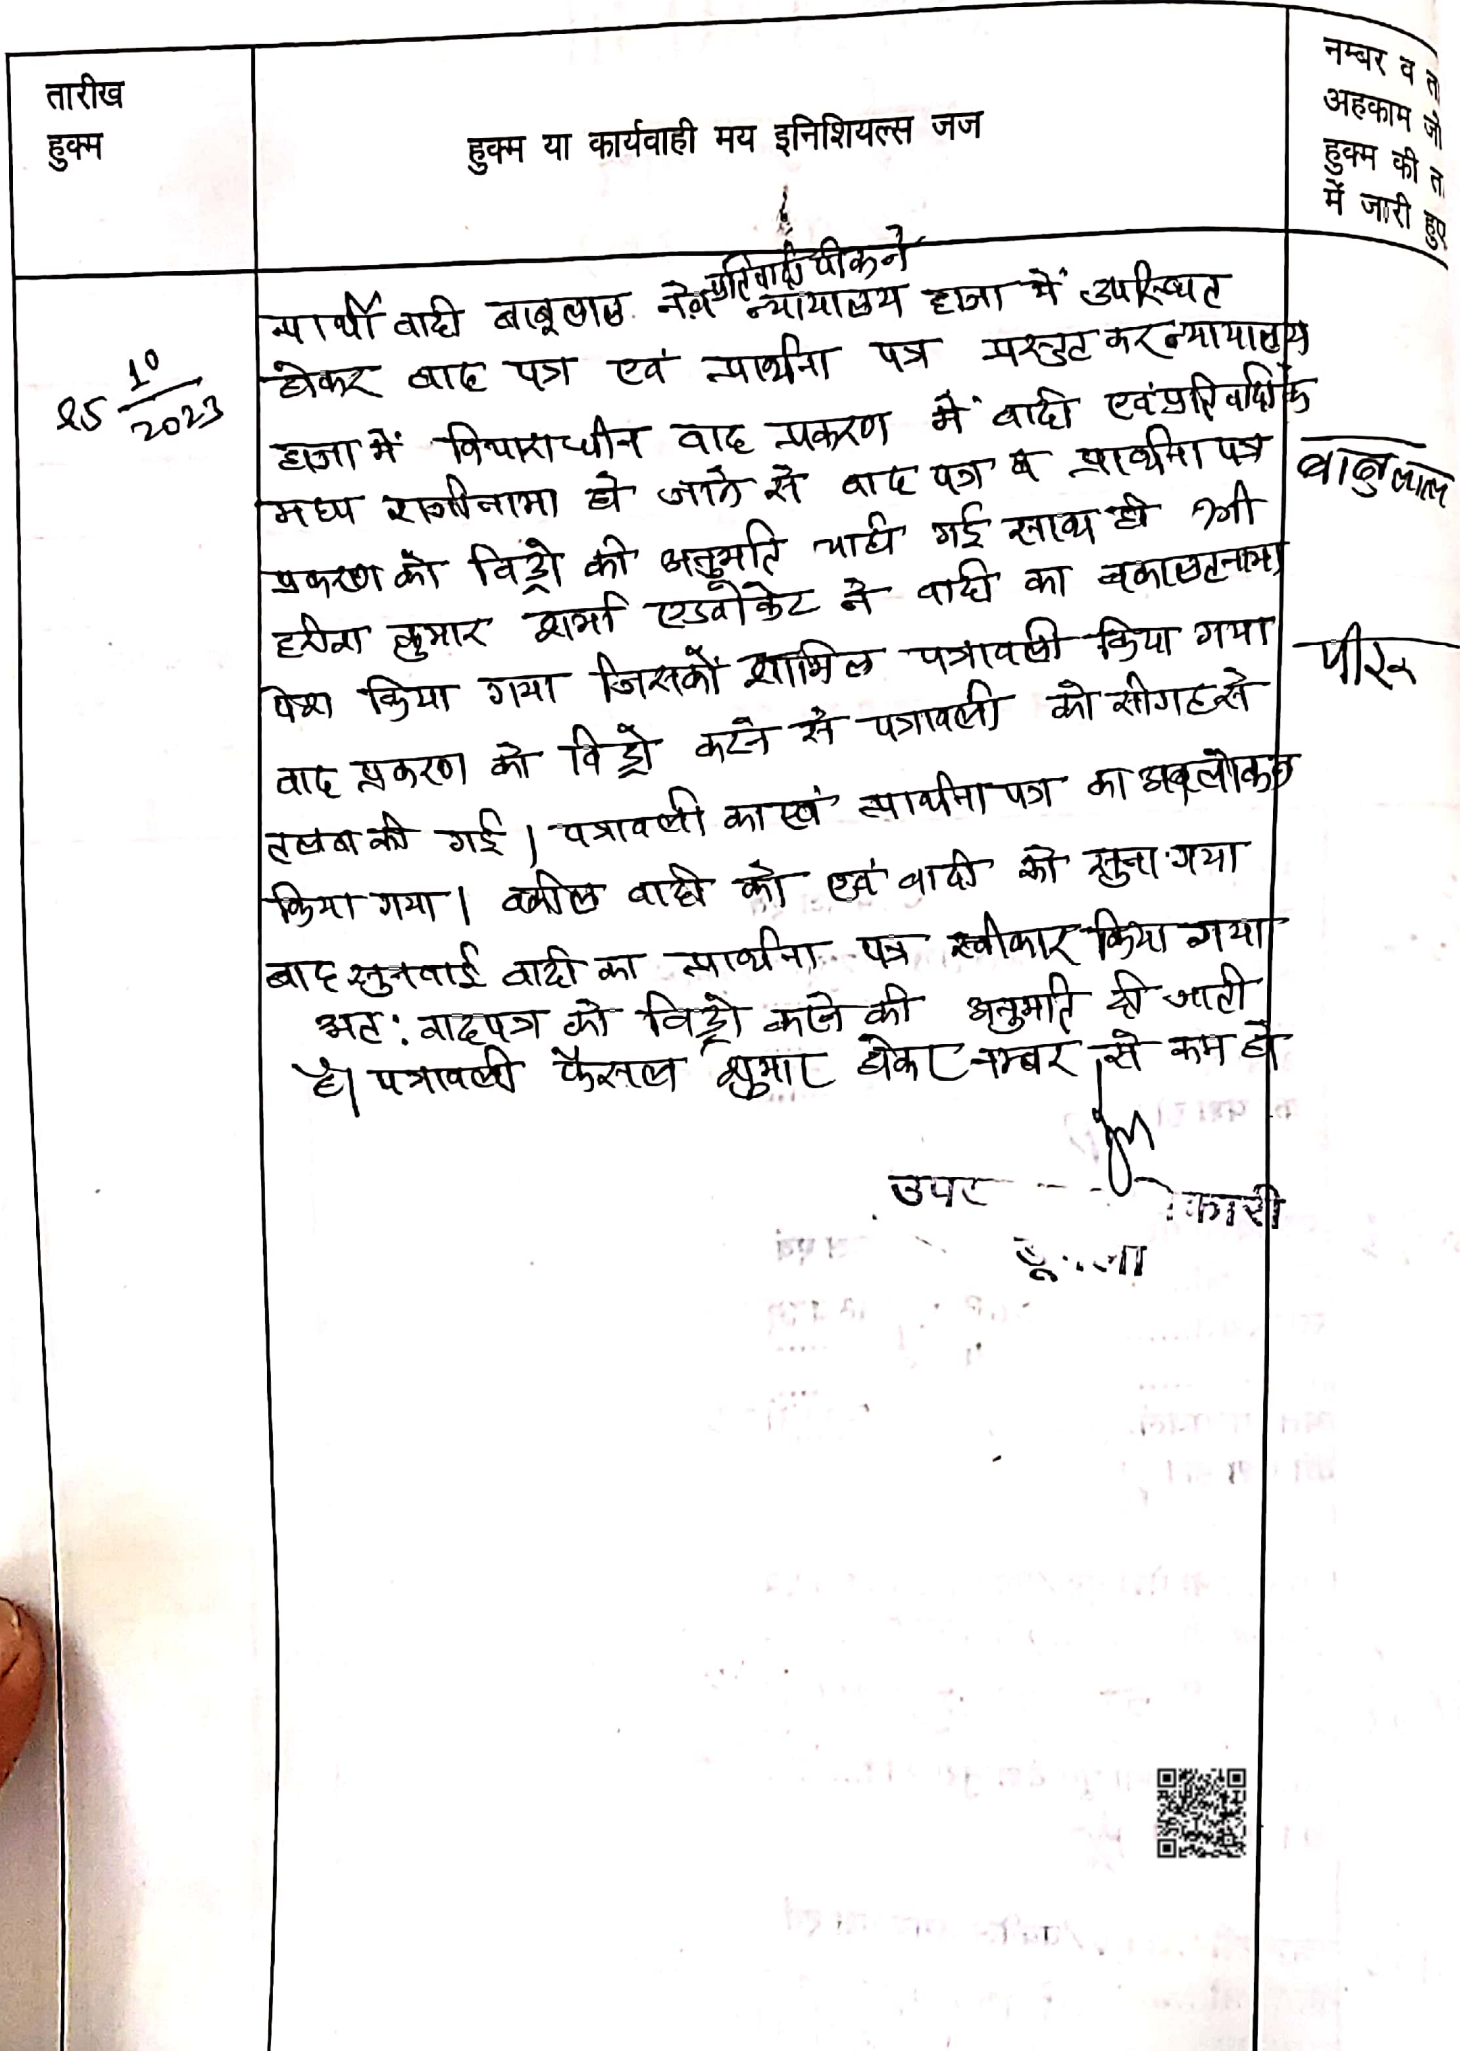 तारीख
हुक्म
हुक्म या कार्यवाही मय इनिशियल्स जज
नम्बर व ता
अहकाम जो
हुक्म की ता
में जारी हुए
25 10/2023
प्रतिवादी पीरू ने
प्रार्थी वादी बाबूलाल ने व न्यायालय हाजा में उपस्थित
होकर वाद पत्र एवं प्रार्थना पत्र प्रस्तुत कर न्यायालय
हाजा में विचाराधीन वाद प्रकरण में वादी एवं प्रतिवादी के
मध्य राजीनामा हो जाने से वाद पत्र व प्रार्थना पत्र
प्रकरण को विड्रो की अनुमति चाही गई साथ ही श्री
कुमार शर्मा एडवोकेट ने वादी का वकालतनामा
पेश किया गया जिसको शामिल पत्रावली किया गया
वाद प्रकरण को विड्रो करने से पत्रावली को सीगह से
तलब की गई । पत्रावली का एवं प्रार्थना पत्र का अवलोकन
किया गया । वकील वादी को एवं वादी को सुना गया
बाद सुनवाई वादी का प्रार्थना पत्र स्वीकार किया गया
अत: वादपत्र को विड्रो करने की अनुमति दी जाती
है। पत्रावली फैसल शुमार होकर नम्बर से कम हो
बाबुलाल
पीरू